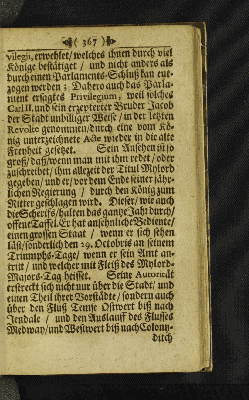 ( 367 )
vilegii, erwehlet / welches ihnen durch viel
Könige bestätiget / und nicht anders als
durch einen Parlaments-Schluß kan ent-
zogen werden; Dahero auch das Parla-
ment ersagtes Privilegium, weil solches
Carl II. und sein erzeyterter Bruder Jacob
der Stadt unbilliger Weise / in der letzten
Revolte genommen / durch eine vom Kö-
nig unterzeichnete Acte wieder in die alte
Freyheit gesetzet. Sein Ansehen ist so
groß / daß / wenn man mit ihm redet / oder
zuschreibet / ihm allezeit der Titul Mylord
gegeben / und er / vor dem Ende seiner jähr-
lichen Regierung / durch den König zum
Ritter geschlagen wird. Dieser / wie auch
die Scheriffs / halten das gantze Jahr durch /
offene Taffel. Er hat ansehnliche Bediente /
einen grossen Staat / wenn er sich sehen
läst / sonderlich den 29. Octobris an seinem
Triumphs-Tage / wenn er sein Amt an-
tritt / und welcher mit Fleiß des Mylord-
Majors-Tag heisset. Seine Autorität
erstreckt sich nicht nur über die Stadt / und
einen Theil ihrer Vorstädte / sondern auch
über den Fluß Temse Ostwert biß nach
Jendale / und den Auslauff des Flusses
Medway / und Westwert biß nach Colony-
ditch